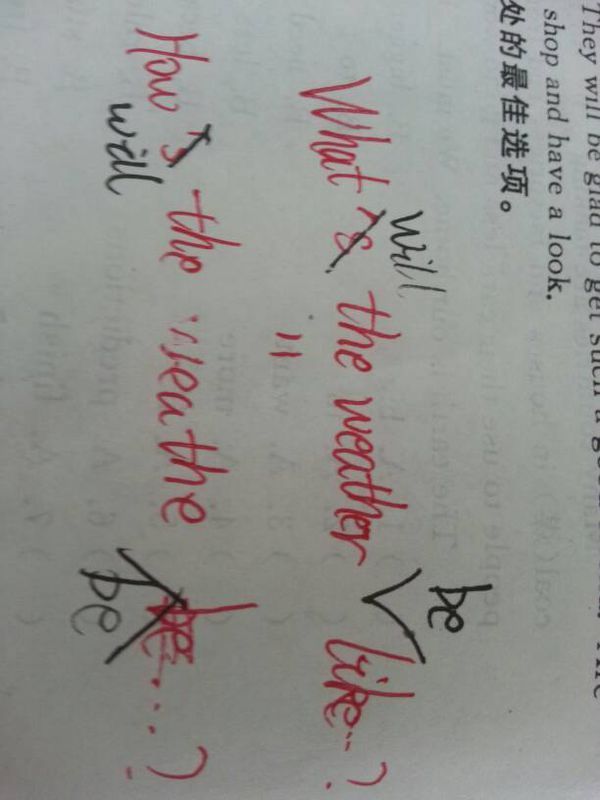 They will be glad to get such a good
shop and have a look.
处的最佳选项。
will be
What's the weather like...?
=
How's the weathe be...?
will be